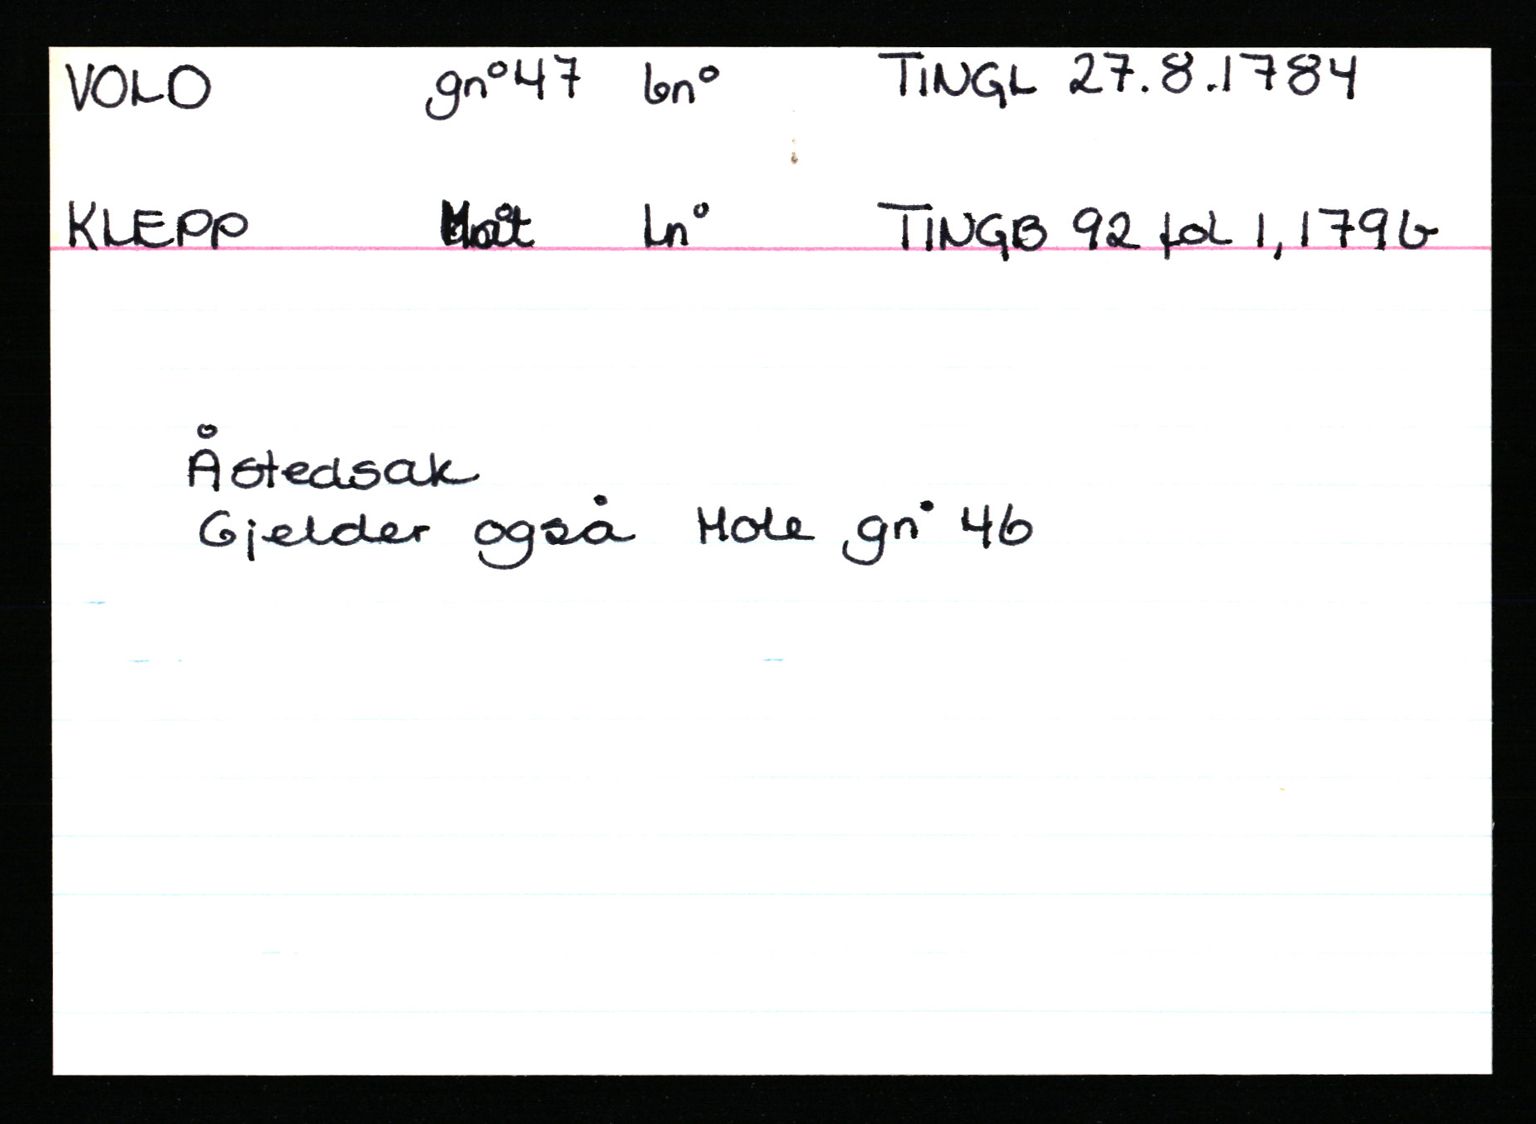 VOLO gn° 47 bn° TINGL 27.8.1784
KLEPP Ln° TINGB 92 fol 1, 179b
Åstedsak
Gjelder også Hole gn° 46